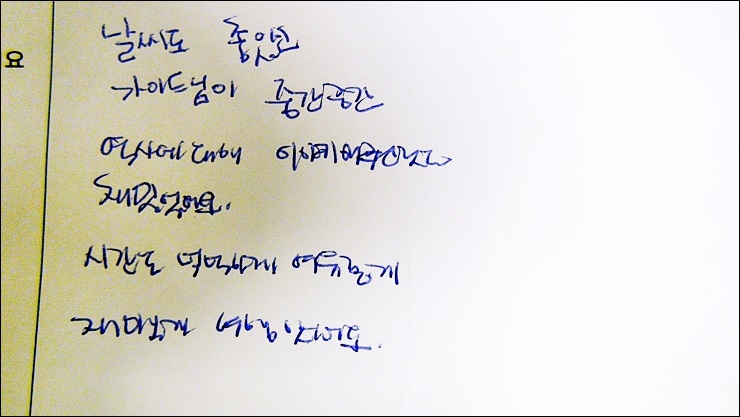 요
날씨도 좋았고
가이드님이 중간중간
역사에 대해 이야기해주셔서
재밌었어요.
시간도 넉넉하게 여유롭게
재미있게 여행했어요.